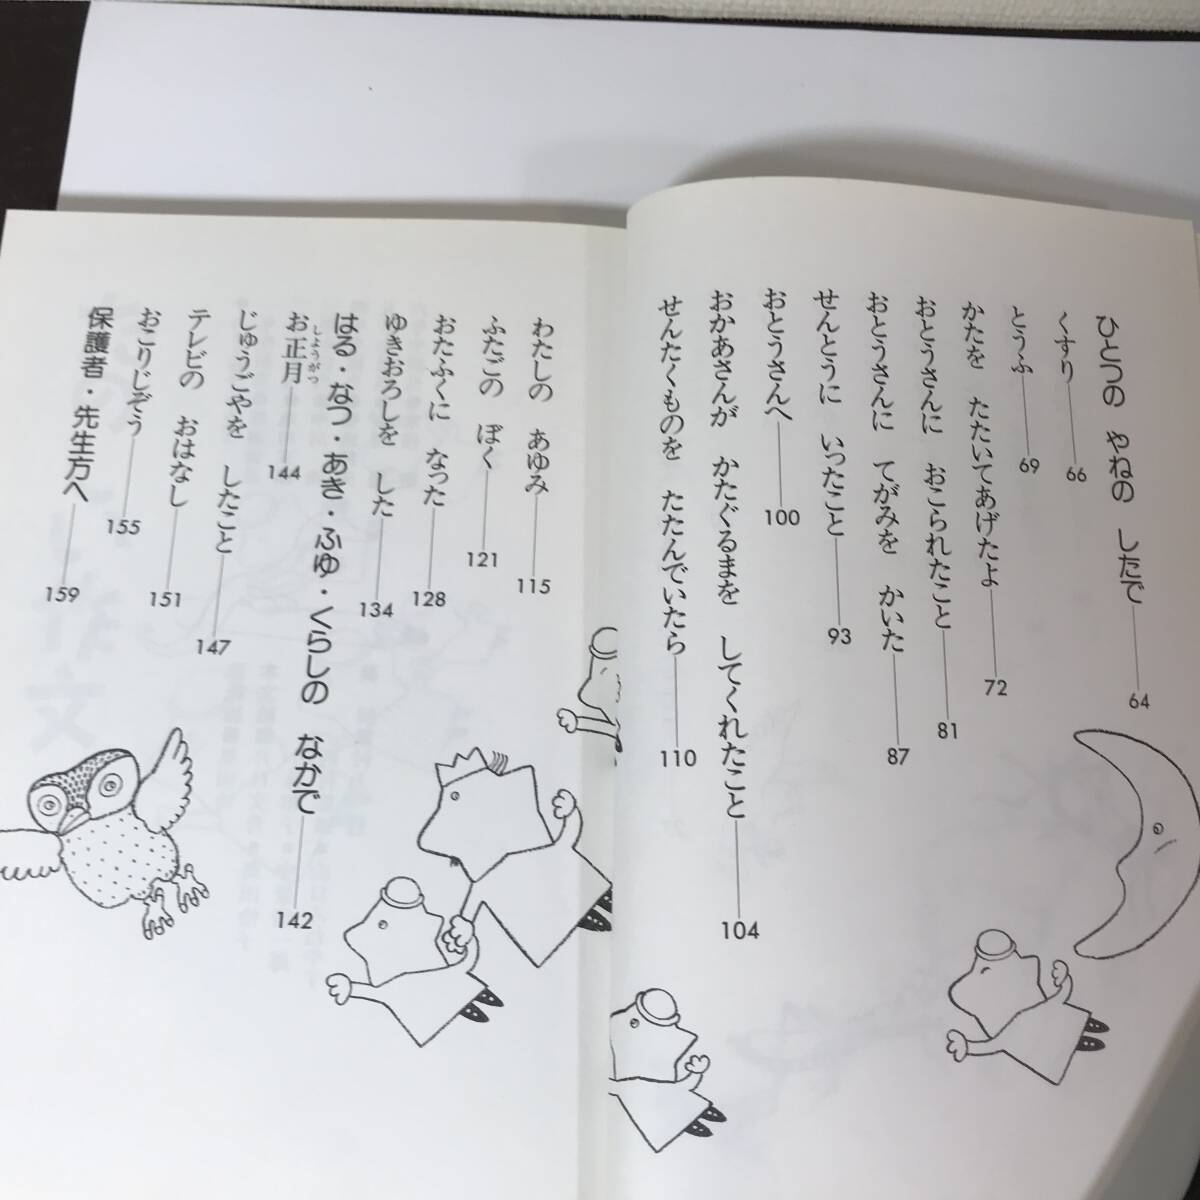 ひとつの やねの したで――64
くすり――66
とうふ――69
かたを たたいてあげたよ――72
おとうさんに おこられたこと――81
おとうさんに てがみを かいた――87
せんとうに いったこと――93
おとうさんへ――100
おかあさんが かたぐるまを してくれたこと――104
せんたくものを たたんでいたら――110
わたしの あゆみ――115
ふたごの ぼく――121
おたふくに なった――128
ゆきおろしを した――134
はる・なつ・あき・ふゆ・くらしの なかで――142
お正月――144
しょうがつ
じゅうごやを したこと――147
テレビの おはなし――151
おこりじぞう――155
保護者・先生方へ――159